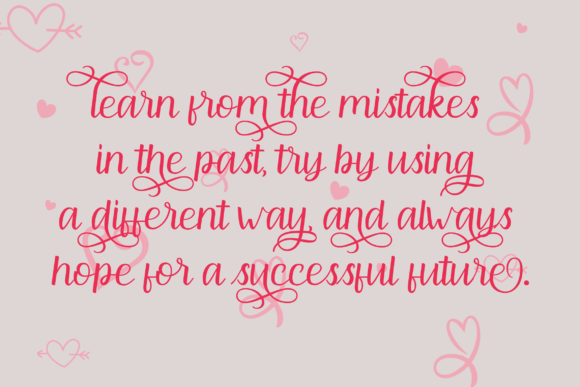 learn from the mistakes
in the past, try by using
a different way, and always
hope for a successful future.